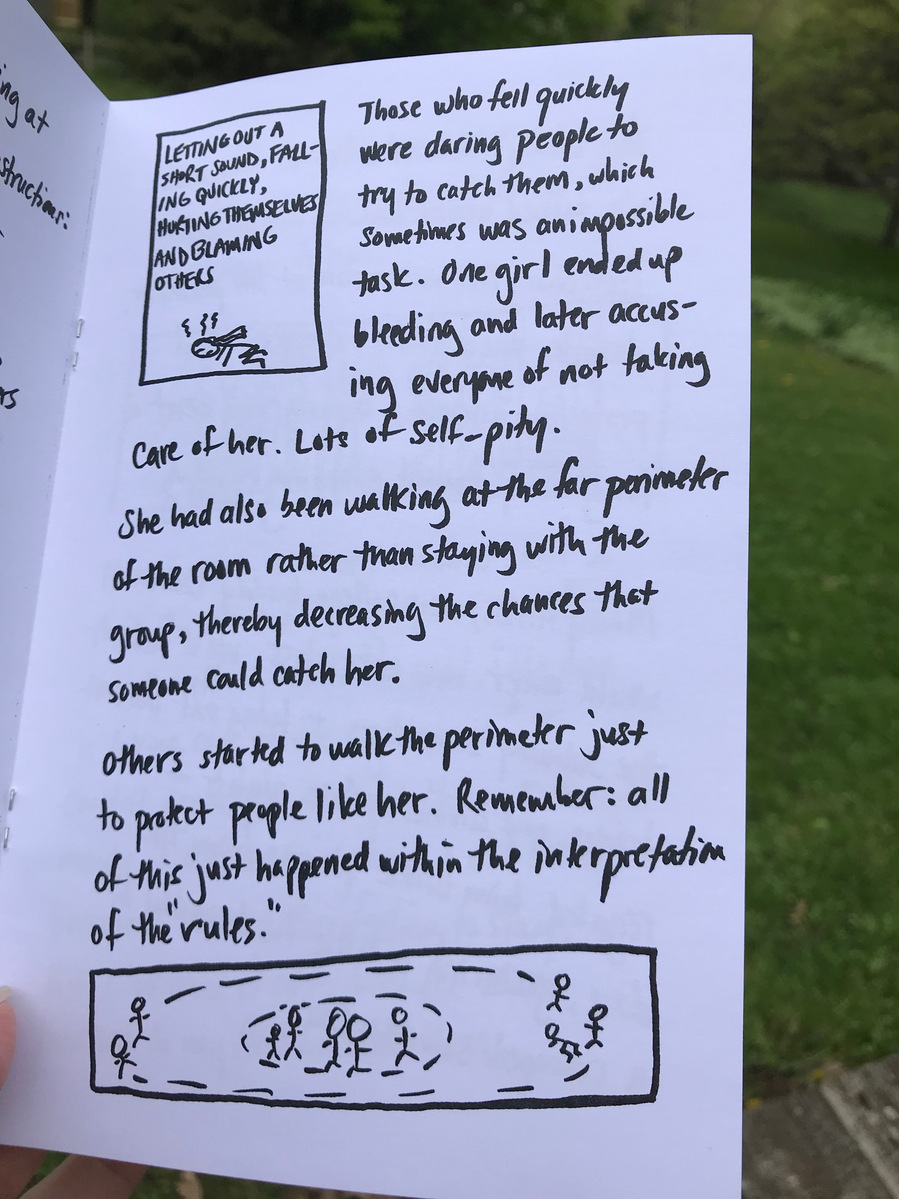 ing at
struction:
LETTING OUT A
SHORT SOUND, FALL-
ING QUICKLY,
HURTING THEMSELVES
AND BLAMING
OTHERS
Those who fell quickly
were daring people to
try to catch them, which
sometimes was an impossible
task. One girl ended up
bleeding and later accus-
ing everyone of not taking
care of her. Lots of self-pity.
She had also been walking at the far perimeter
of the room rather than staying with the
group, thereby decreasing the chances that
someone could catch her.
Others started to walk the perimeter just
to protect people like her. Remember: all
of this just happened within the interpretation
of the "rules."